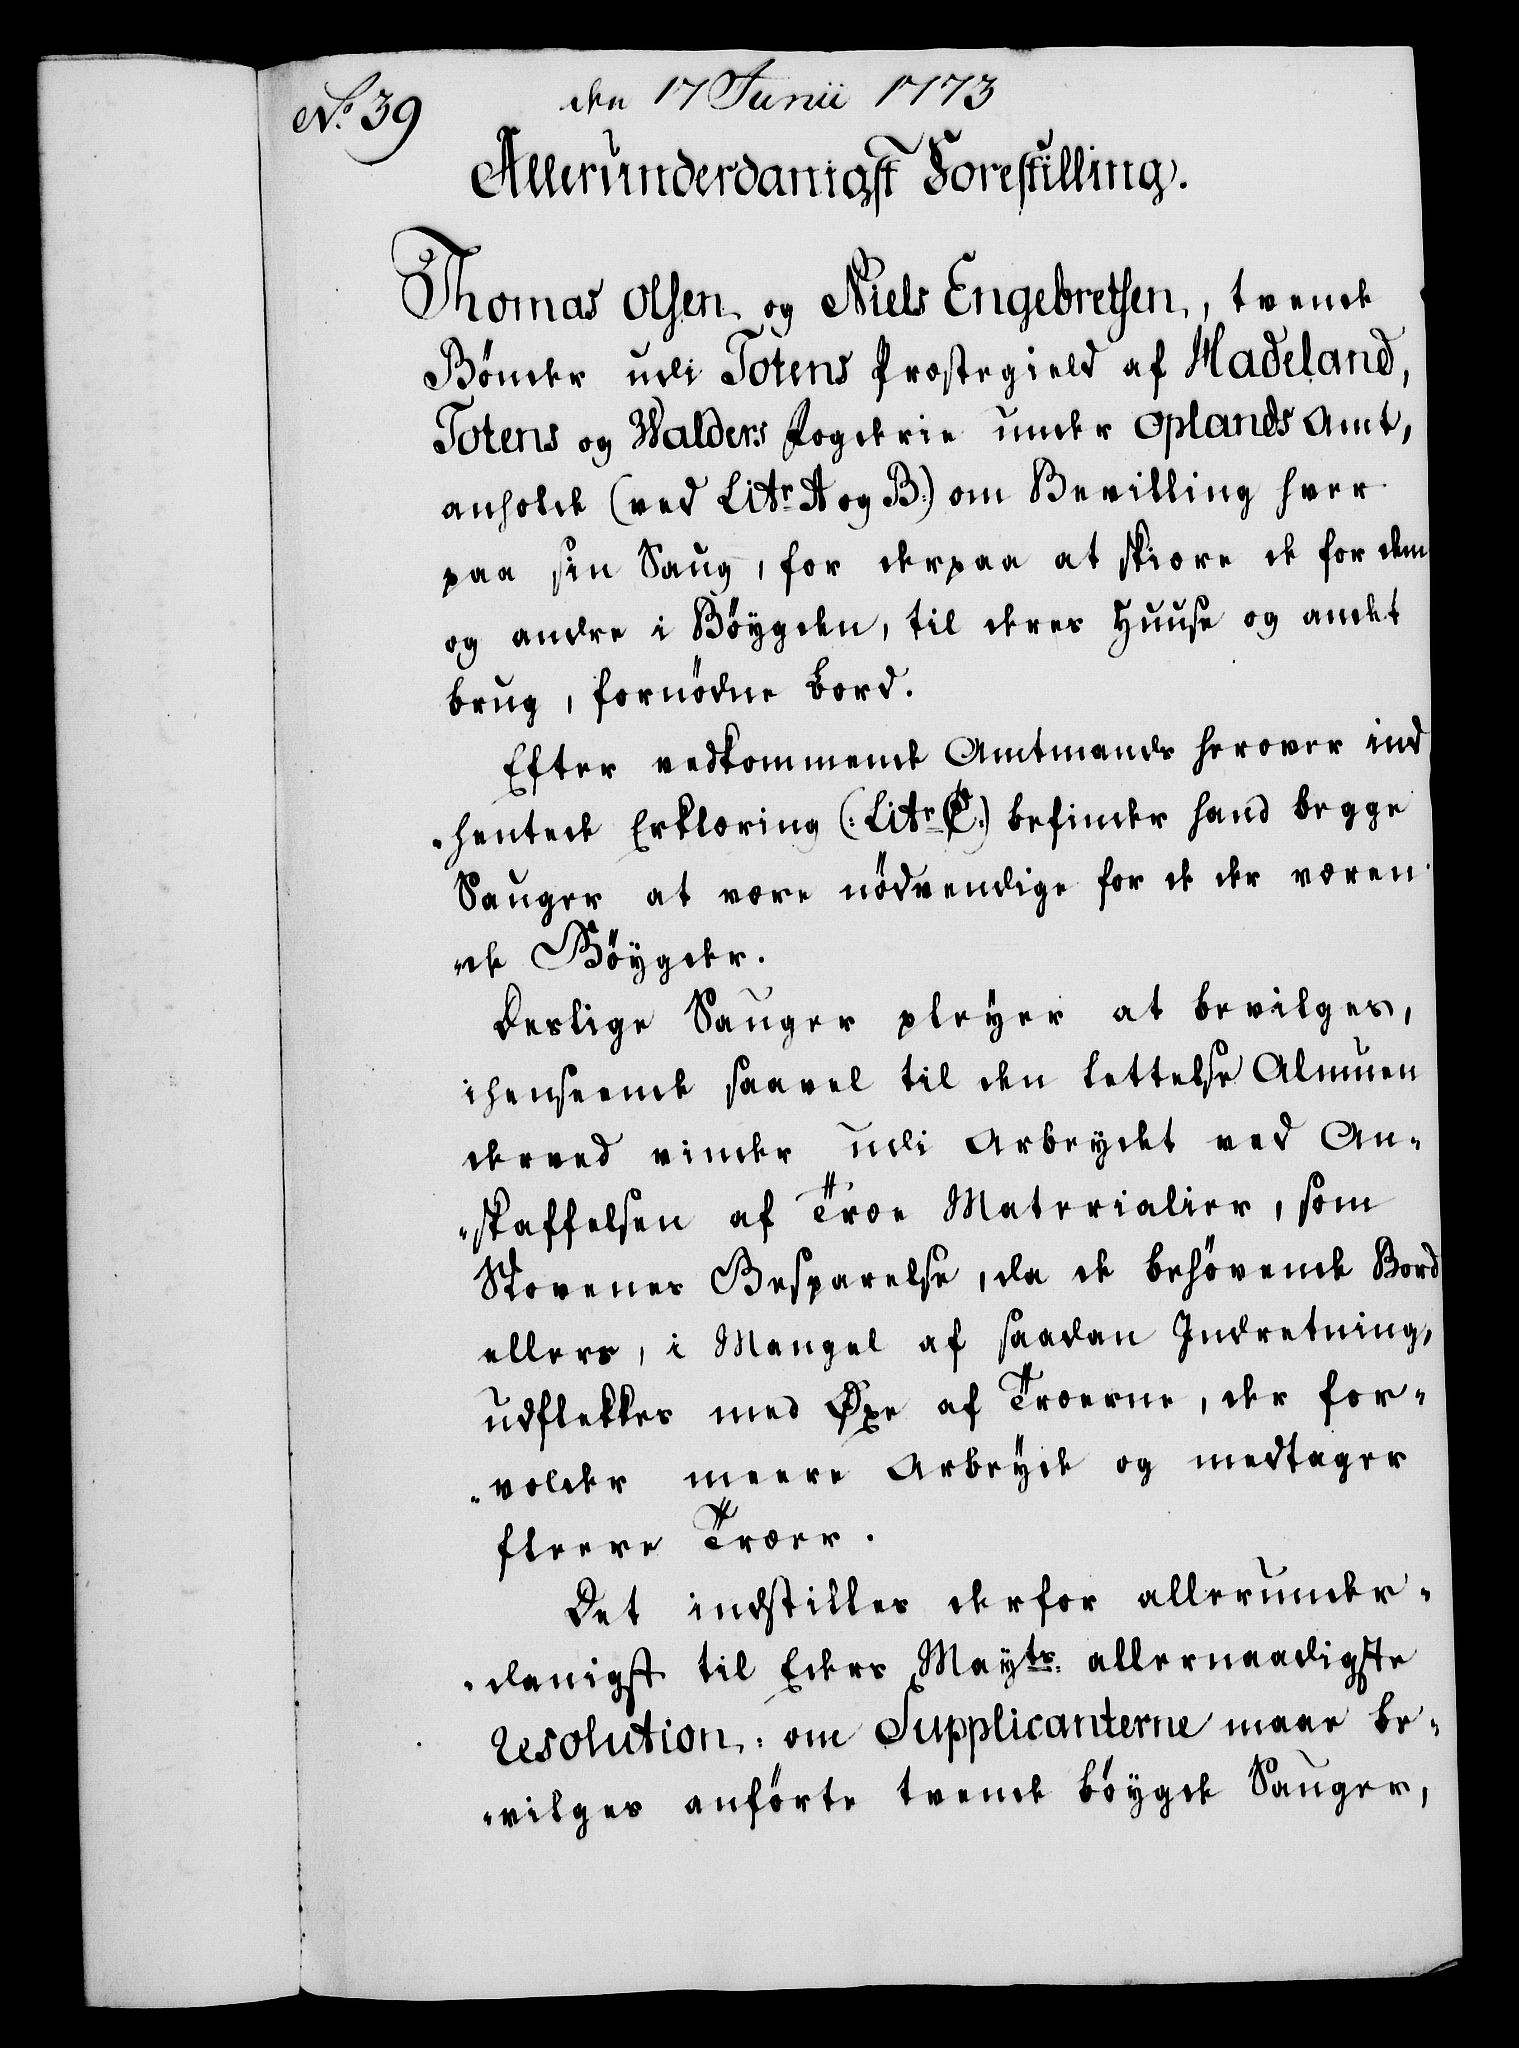 No. 39
den 17 Junii 1773
Allerunderdanigst Forestilling.
Thomas Olsen og Niels Engebretsen, tvende
Bönder udi Totens Præstegield af Hadeland,
Totens og Walders Fogderie under Oplands Amt,
anholde (ved Litr. A og B:) om Bevilling hver
paa sin Saug, for derpaa at skiære de for dem
og andre i Böygden, til deres Huuse og andet
brug, fornödne Bord.
Efter vedkommende Amtmands herover ind
-hentede Erklæring (: Litr. C:) befinder hand begge
Sauger at være nödvendige for de der væren
-de Böygder.
Deslige Sauger pleyer at bevilges,
ihenseende saavel til den lettelse Almuen
derved vinder udi Arbeydet ved An-
-skaffelsen af Træe Materialier, som
Skovenes Besparelse, da de behövende Bord
ellers, i Mangel af saadan Indretning,
udflekkes med Øxe af Træerne, der for-
-volder meere Arbeyde og medtager
fleere Træer.
Det indstilles derfor allerunder-
-danigst til Eders Mayts. allernaadigste
Resolution: om Supplicanterne maae be-
-vilges anförte tvende böygde Sauger,